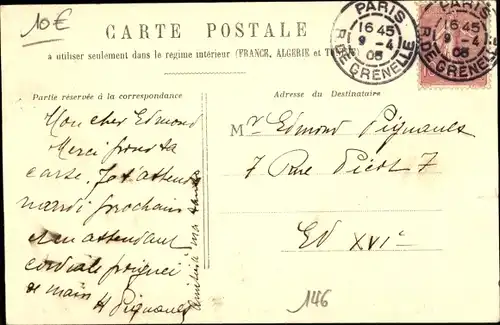 10€
CARTE POSTALE
a utiliser seulement dans le régime intérieur (FRANCE, ALGERIE et
PARIS
16 45
9 - 4
05
R. DE GRENELLE
PARIS
16 45
9 - 4
05
R. DE GRENELLE
Partie réservée à la correspondance
Adresse du Destinataire
Mon cher Edmond
Merci pour ta
carte. Je t'attends
mardi prochain
et en attendant
cordiale poignée
de main
H Pignanel
amitiés à ma tante
Mr Edmond Pignanel
7 Rue Picot 7
EV XVIe
146